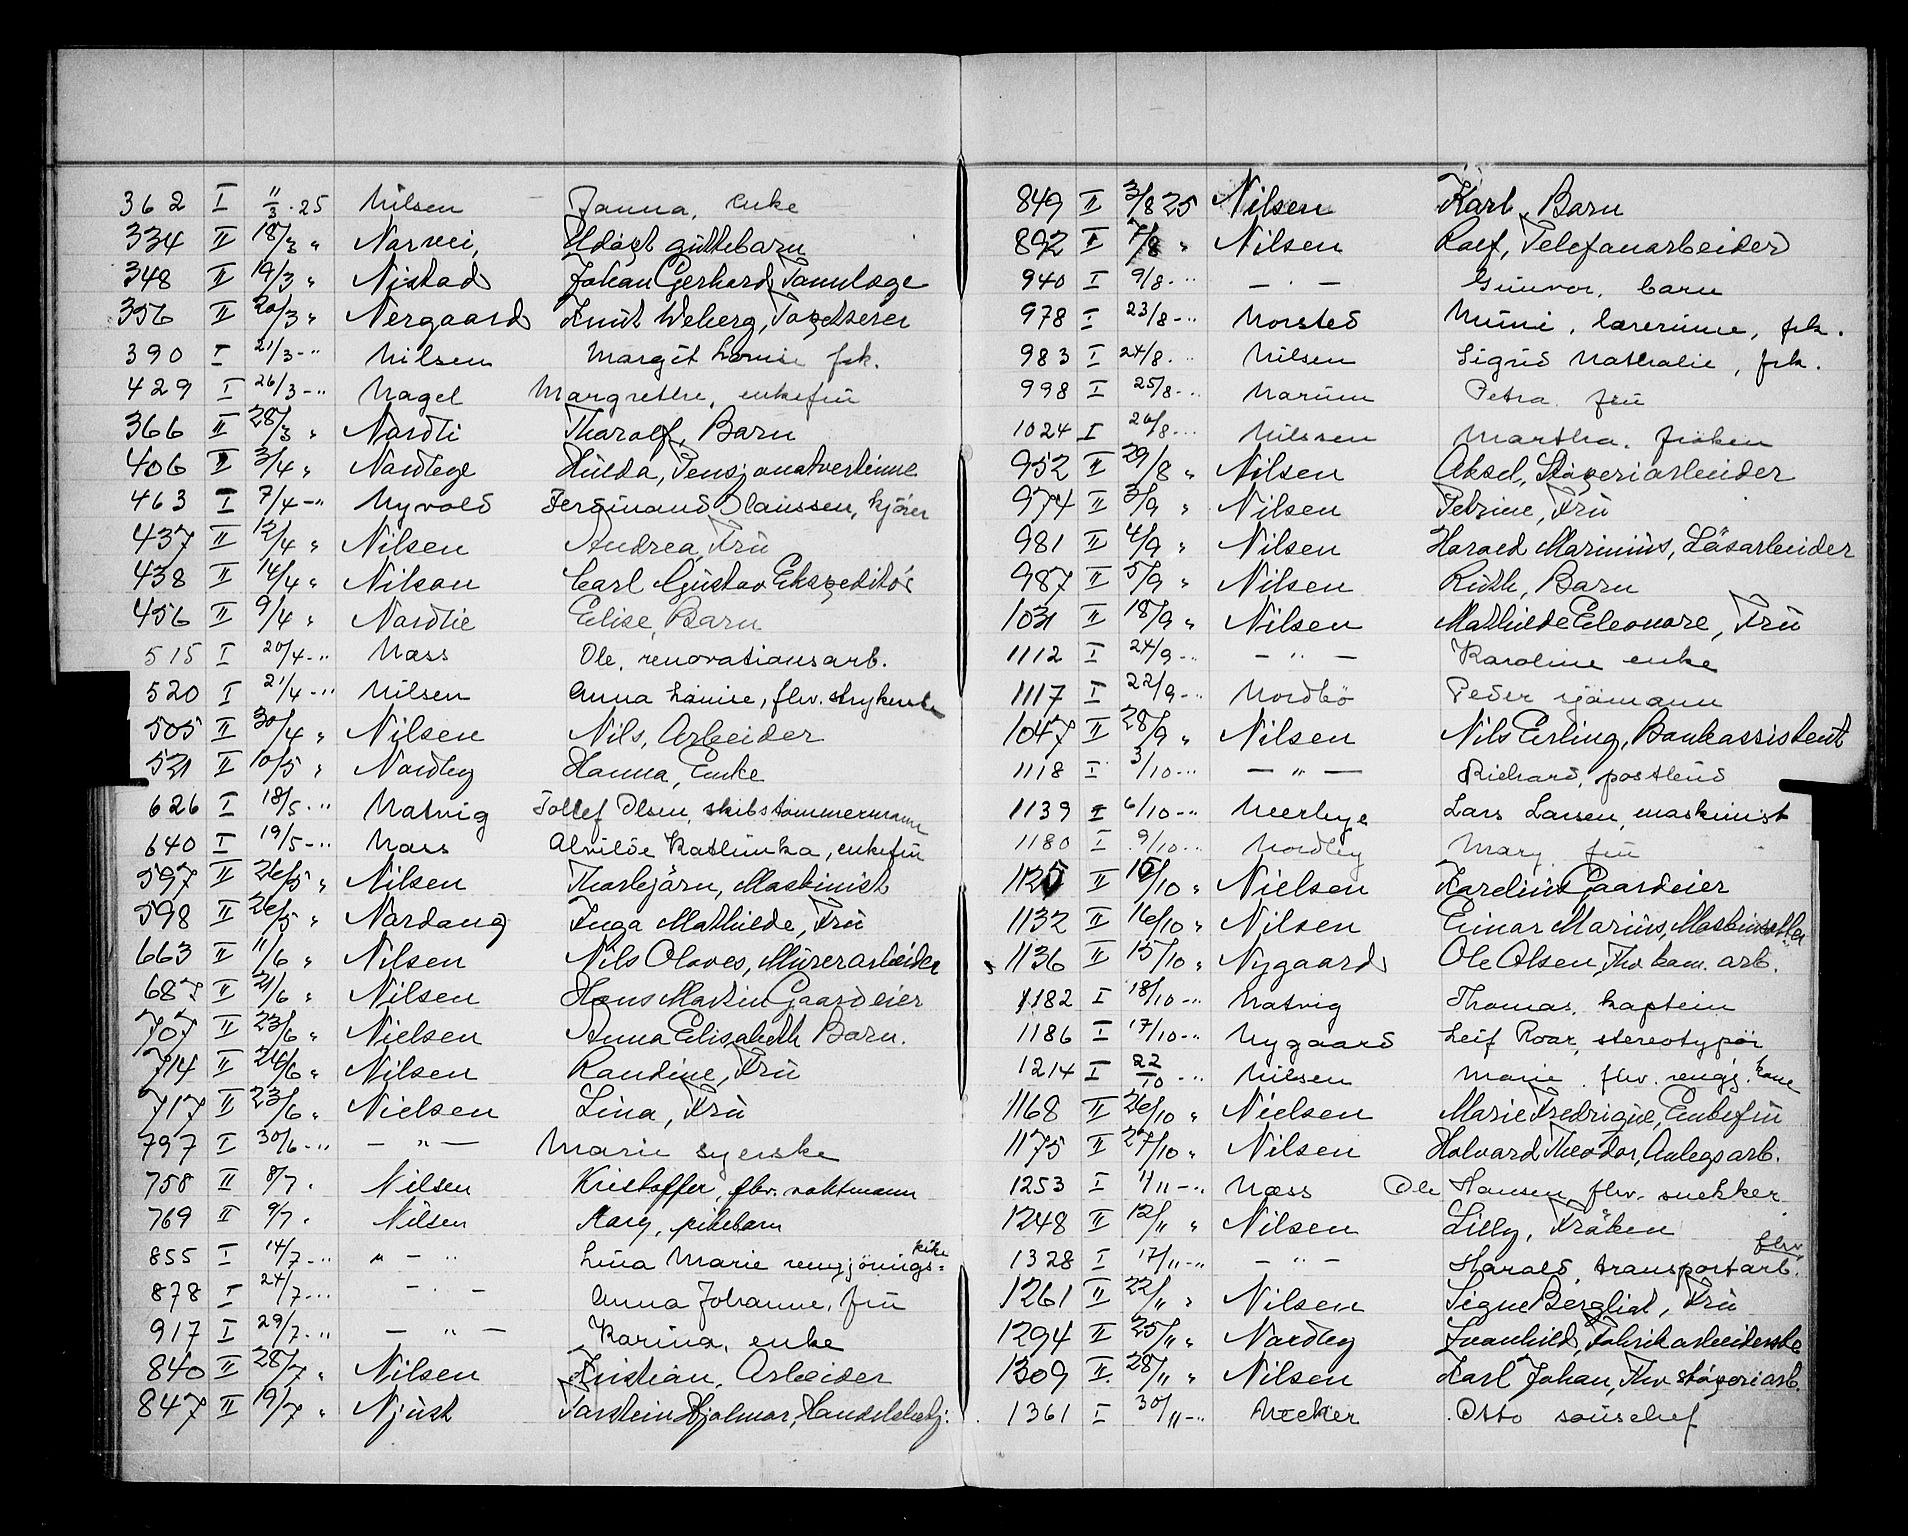 362 I 11/3.25 Nilsen Janna, enke
334 II 18/3 " Narvei, Udöpt guttebarn
348 II 19/3 " Nistad Johan Gerhard, Tannlæge
356 II 20/3 " Nergaard Knut Weberg,
390 I 21/3-" Nilsen Margit Louise frk.
429 I 26/3-" Nagel Margrethe, enkefru
366 II 28/3 " Nordli Tharalf, Barn
406 II 3/4 " Nordlege Hulda, Pensjonatvertinne
463 I 7/4-" Nyvold Ferdinand Olaussen, kjörer
437 II 12/4 " Nilsen Andrea, Fru
438 II 14/4 " Nilson Carl Gustav Ekspeditör
456 II 9/4 " Nordlie Elise, Barn
515 I 20/4-" Næss Ole, renovationsarb.
520 I 21/4-" Nilsen Anna Louise, fhv. strykerske
505 II 30/4 " Nilsen Nils, Arbeider
521 II 10/5 " Nordby Hanna, Enke
626 I 18/5-" Natvig Tollef Olsen, skibstømmermann
640 I 19/5-" Næss Alvilde Kathinka, enkefru
597 II 26/5 " Nilsen Thorbjörn, Maskinist
598 II 26/5 " Nordang Inga Mathilde, Fru
663 II 11/6 " Nilsen Nils Olaves, Murerarbeider
687 II 21/6 " Nilsen Hans Martin Gaardeier
707 II 23/6 " Nielsen Anna Elisabeth Barn.
714 II 26/6 " Nilsen Randine, Fru
717 II 23/6 " Nielsen Lina, Fru
797 I 30/6-" — " — Marie syerske
758 II 8/7 " Nilsen Kristoffer, fhv. vaktmann
769 II 9/7 " Nilsen Aarg, pikebarn
855 I 14/7-" " - " Lina Marie rengjörings= pike
878 I 24/7-" — " — Anna Johanne, fru
917 I 29/7-" — " — Karina, enke
840 II 28/7 " Nilsen Kristian, Arbeider
847 II 19/7 " Njust Torstein Hjalmar, Handelsbetj.
849 II 3/8 25 Nilsen Karl, Barn
892 I 7/8 " Nilsen Rolf, Telefonarbeider
940 I 9/8-" — " — Gunvor, barn
978 I 23/8-" Norsted Mimi, lærerinne, frk.
983 I 24/8-" Nilsen Sigrid Nathalie, frk.
998 I 25/8-" Narum Petra fru
1024 I 20/8-" Nilssen Martha, fröken
952 II 29/8 " Nilsen Aksel, Stöperiarbeider
974 II 3/9 " Nilsen Petrine, Fru
981 II 4/9 " Nilsen Harald Marinius, Läsarbeider
987 II 5/9 " Nilsen Ruth, Barn
1031 II 18/9 " Nilsen Mathilde Eleonore, Fru
1112 I 24/9-" — " — Karoline enke
1117 I 22/9-" Nordbö Peder sjömann
1047 II 28/9 " Nilsen Nils Erling, Bankassistent
1118 I 3/10-" — " — Richard, postbud
1139 I 6/10-" Neerbye Lars Larsen, maskinist
1180 I 9/10-" Nordby Mary fru
1125 II 15/10 " Nielsen Karelius Gaardeier
1132 II 16/10 " Nilsen Einar Marius, Maskinsetter
1136 II 15/10 " Nygaard Ole Olsen, Fhv kom. arb.
1182 I 18/10-" Natvig Thomas, kaptein
1186 I 17/10-" Nygaard Leif Roar, stereotypör
1214 I 22/10-" Nilsen Marie, fhv. rengj. kone
1168 II 26/10 " Nielsen Marie Fredrigue, Enkefru
1175 II 27/10 " Nilsen Halvard Theodor, Anlegsarb.
1253 I 1/11-" Næss Ole Hansen, fhv. snekker
1248 II 12/11 " Nilsen Lilly, Fröken
1328 I 17/11-" — " — Harald, transportarb. fhv.
1261 II 22/11 " Nilsen Signe Bergliot, Fru
1294 II 25/11 " Nordby Svanhild, Fabrikarbeiderske
1309 II 28/11 " Nilsen Karl Johan, Fhv stöperiarb.
1361 I 30/11-" Necker Otto souschef